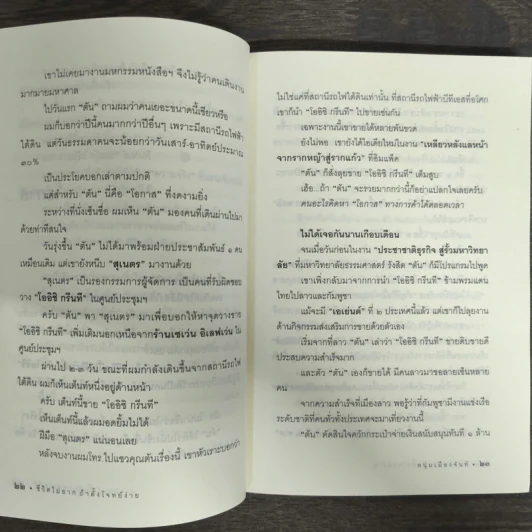 เขาไม่เคยมางานมหกรรมหนังสือฯ จึงไม่รู้ว่าคนเดินงาน
มากมายมหาศาล
ไปวันแรก "ตัน" ถามผมว่าคนเยอะขนาดนี้เชียวหรือ
ผมก็บอกว่าปีนี้คนมากกว่าปีอื่นๆ เพราะมีสถานีรถไฟฟ้า
ใต้ดิน แต่วันธรรมดาคนจะน้อยกว่าวันเสาร์-อาทิตย์ประมาณ
๓๐%
เป็นประโยคบอกเล่าตามปกติ
แต่สำหรับ "ตัน" นี่คือ "โอกาส" ที่งดงามยิ่ง
ระหว่างที่นั่งเซ็นชื่อ ผมเห็น "ตัน" มองคนที่เดินผ่านไปมา
ด้วยท่าทีสนใจ
วันรุ่งขึ้น "ตัน" ไม่ได้มาพร้อมฝ่ายประชาสัมพันธ์ ๑ คน
เหมือนเดิม แต่เขายังหนีบ "สุเนตร" มางานด้วย
"สุเนตร" เป็นรองกรรมการผู้จัดการ เป็นคนที่รับผิดชอบ
วาง "โออิชิ กรีนที" ในศูนย์ประชุมฯ
ครับ "ตัน" พา "สุเนตร" มาเพื่อบอกให้หาจุดวางขาย
"โออิชิ กรีนที" เพิ่มเติมนอกเหนือจากร้านเซเว่น อิเลฟเว่น ใน
ศูนย์ประชุมฯ
ผ่านไป ๒-๓ วัน ขณะที่ผมกำลังเดินขึ้นจากสถานีรถไฟ
ใต้ดิน ผมก็เห็นเต็นท์หนึ่งอยู่ด้านหน้า
ครับ เต็นท์นี้ขาย "โออิชิ กรีนที"
เห็นเต็นท์นี้แล้วผมอดยิ้มไม่ได้
ฝีมือ "สุเนตร" แน่นอนเลย
หลังจบงานผมโทร.ไปแซวคุณตันเรื่องนี้ เขาหัวเราะบอกว่า
๒๒ • ชีวิตไม่ยาก ถ้าตั้งโจทย์ง่าย
ไม่ใช่แค่ที่สถานีรถไฟใต้ดินเท่านั้น ที่สถานีรถไฟฟ้าบีทีเอสที่อโศก
เขาก็นำ "โออิชิ กรีนที" ไปขายเช่นกัน
เฉพาะงานนี้เขาขายได้หลายพันขวด
ยังไม่พอ เขายังได้ไอเดียใหม่ในงาน "เหลียวหลังแลหน้า
จากรากหญ้าสู่รากแก้ว" ที่อิมแพ็ค
"ตัน" ก็ส่งลุยขาย "โออิชิ กรีนที" เต็มสูบ
เฮ้อ...ถ้า "ตัน" จะรวยมากกว่านี้ก็อย่าแปลกใจเลยครับ
คนอะไรคิดหา "โอกาส" ทางการค้าได้ตลอดเวลา
ไม่ได้เจอกันนานเกือบเดือน
จนเมื่อวันก่อนในงาน "ประชาชาติธุรกิจ สู่รั้วมหาวิทยา
ลัย" ที่มหาวิทยาลัยธรรมศาสตร์ รังสิต "ตัน" ก็มีโปรแกรมไปพูด
เขาเพิ่งกลับมาจากการนำ "โออิชิ กรีนที" ข้ามพรมแดน
ไทยไปลาวและกัมพูชา
แม้จะมี "เอเย่นต์" ที่ ๒ ประเทศนี้แล้ว แต่เขาก็ไปลุยงาน
ด้านกิจกรรมส่งเสริมการขายด้วยตัวเอง
เริ่มจากที่ลาว "ตัน" เล่าว่า "โออิชิ กรีนที" ขายดิบขายดี
ประสบความสำเร็จมาก
และตัว "ตัน" เองก็ขายได้ มีคนลาวมาขอลายเซ็นหลาย
คน
จากความสำเร็จที่เมืองลาว พอรู้ว่าที่กัมพูชามีงานแข่งเรือ
ระดับชาติที่คนทั่วทั้งประเทศจะมาเที่ยวงานนี้
"ตัน" ตัดสินใจควักกระเป๋าจ่ายเงินสนับสนุนทันที ๑ ล้าน
หนุ่มเมืองจันท์ • ๒๓